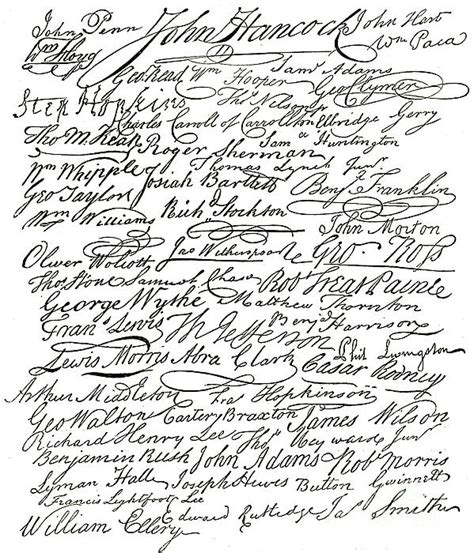 John Penn John Hancock John Hart
Wm Floyd Wm Paca
Geo Read Wm Hooper Saml Adams Geo Clymer
Step Hopkins Thos Nelson jr
Charles Carroll of Carrollton Elbridge Gerry
Tho M:Kean Roger Sherman Saml Huntington
Wm Whipple Josiah Bartlett Thomas Lynch Junr Benj Franklin
Geo Taylor
Wm Williams Richd Stockton John Morton
Oliver Wolcott Jas Witherspoon Geo. Ross
Thos Stone Samuel Chase Robt Treat Paine
George Wythe Matthew Thornton
Frans Lewis Th Jefferson Benj Harrison
Lewis Morris Abra Clark Phil Livingston
Cæsar Rodney
Arthur Middleton Fras Hopkinson
Geo Walton Carter Braxton James Wilson
Richard Henry Lee Thos Heyward Junr
Benjamin Rush John Adams Robt Morris
Lyman Hall Joseph Hewes Button Gwinnett
Francis Lightfoot Lee
William Ellery Edward Rutledge Jas Smith